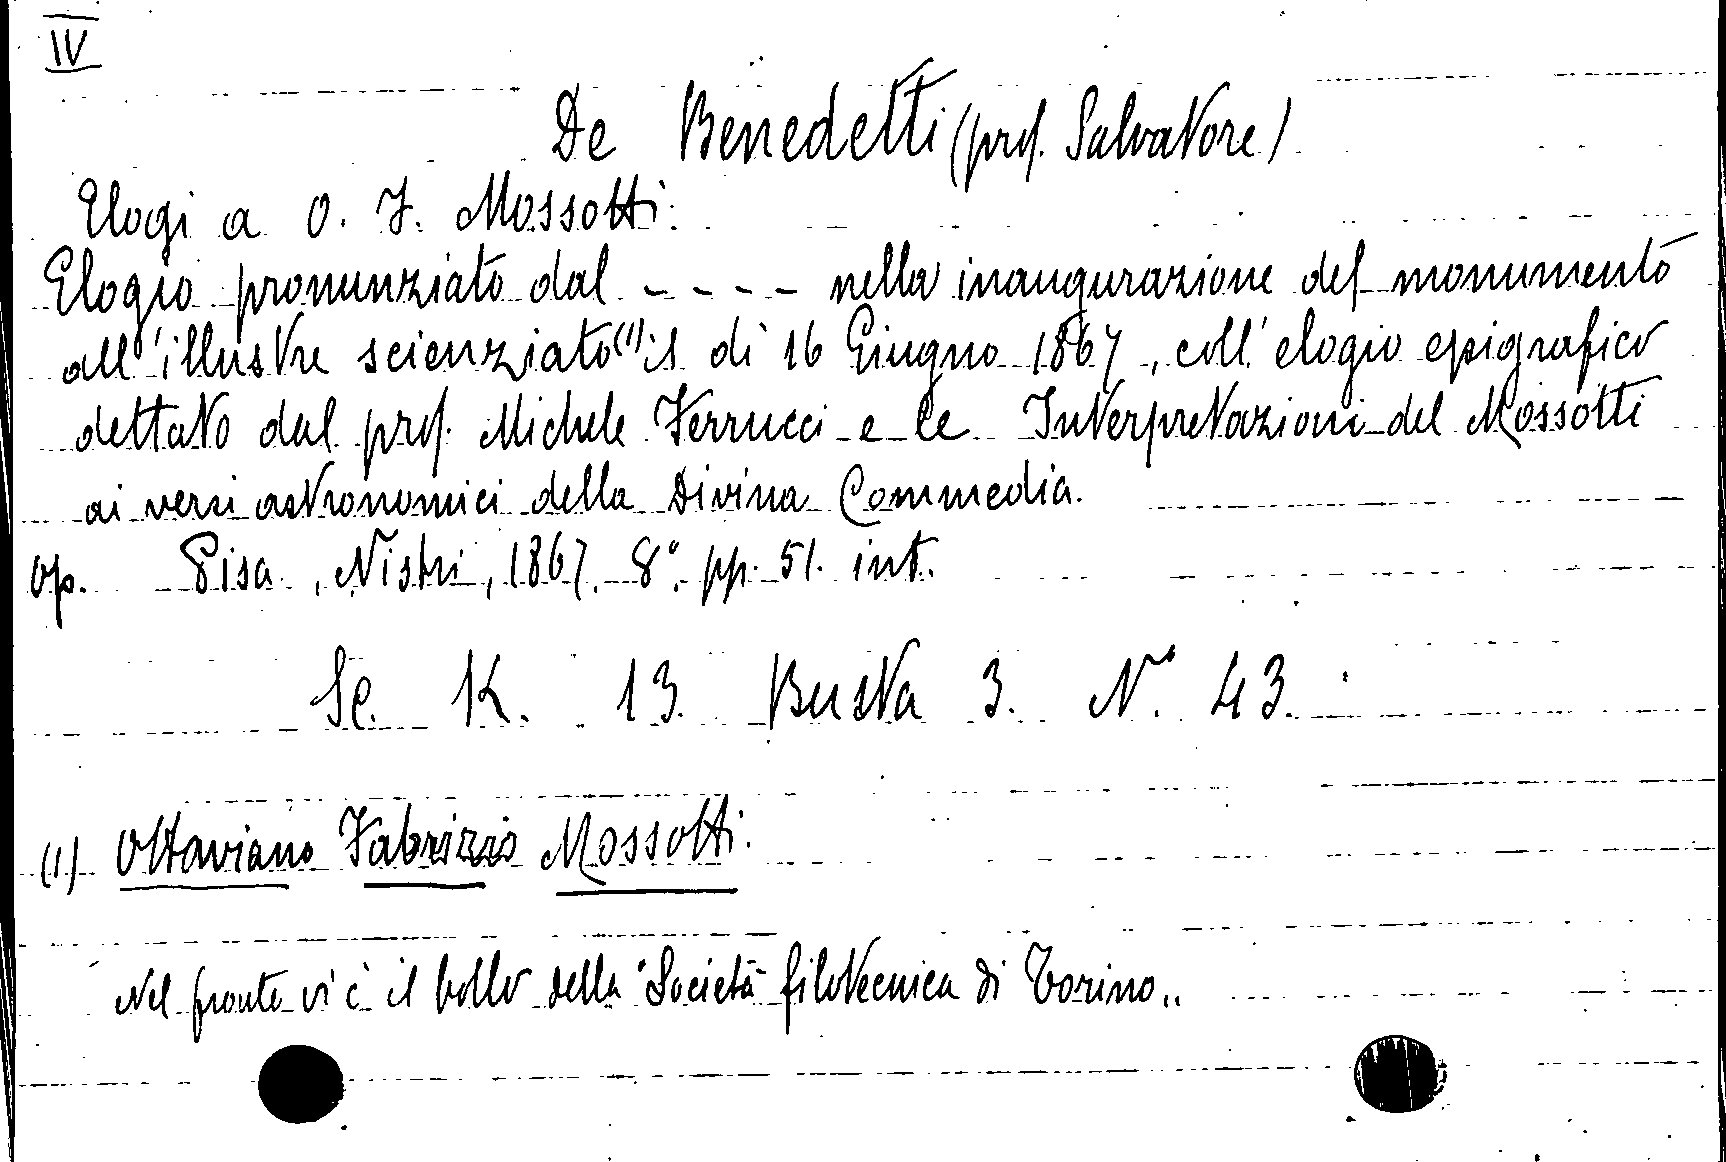 IV
De Benedetti (prof. Salvatore)
Elogi a O. F. Mossotti:
Elogio pronunziato dal - - - - nella inaugurazione del monumento
all'illustre scienziato(1) il di 16 Giugno 1867, coll'elogio epigrafico
dettato dal prof. Michele Ferrucci e le Interpretazioni del Mossotti
ai versi astronomici della Divina Commedia.
Op. Pisa, Nistri, 1867. 8°. pp. 51. int.
Sc. K. 13. Busta 3. N.° 43.
(1) Ottaviano Fabrizio Mossotti.
Nel fronte vi è il bollo della "Società filotecnica di Torino„